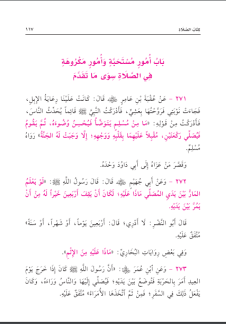 كتاب الصلاة ١٢٧
باب أمور مستحبة وأمور مكروهة
في الصلاة سوى ما تقدم
٢٧١ - عن عقبة بن عامر ﷺ قال: كانت علينا رعاية الإبل،
فجاءت نوبتي فروحتها بعشي، فأدركت النبي ﷺ قائماً يحدث الناس،
فأدركت من قوله: «ما من مسلم يتوضأ فيحسن وضوءه، ثم يقوم
فيصلي ركعتين، مقبلاً عليهما بقلبه ووجهه؛ إلا وجبت له الجنة» رواه
مسلم.
وقصر من عزاه إلى أبي داود وحده.
٢٧٢ - وعن أبي جهيم قال: قال رسول الله ﷺ: «لو يعلم
المار بين يدي المصلي ماذا عليه؛ لكان أن يقف أربعين خيراً له من أن
يمر بين يديه.
قال أبو النضر: لا أدري؛ قال: أربعين يوماً، أو شهراً، أو سنة»
متفق عليه.
وفي بعض روايات البخاري: «ماذا عليه من الإثم».
٢٧٣ - وعن ابن عمر: «أن رسول الله ﷺ كان إذا خرج يوم
العيد أمر بالحربة فتوضع بين يديه، فيصلي إليها والناس وراءه، وكان
يفعل ذلك في السفر؛ فمن ثم اتخذها الأمراء» متفق عليه.